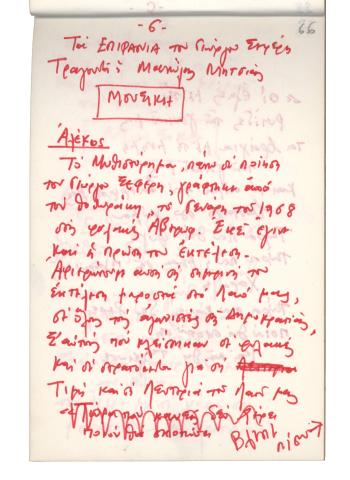 - 6 -
66
Τα ΕΠΙΦΑΝΙΑ του Γιώργου Σεφέρη
Τραγουδά ο Μανώλης Μητσιάς
ΜΟΥΣΙΚΗ
Αλέκος
Το Μυθιστόρημα, πάνω σε ποίηση
του Γιώργου Σεφέρη, γράφτηκε από
τον Θοδωράκη, το Γενάρη του 1968
στη φυλακή Αβέρωφ. Εκεί έγινε
και η πρώτη του εκτέλεση.
Αφιερώνουμε αυτή τη σημερινή του
εκτέλεση μπροστά στο Λαό μας,
σ' όλους τους αγωνιστές της Δημοκρατίας,
σ' αυτούς που κλείστηκαν σε φυλακές
και σε στρατόπεδα για τη
Τιμή και τη Λευτεριά του Λαού μας
πίσω